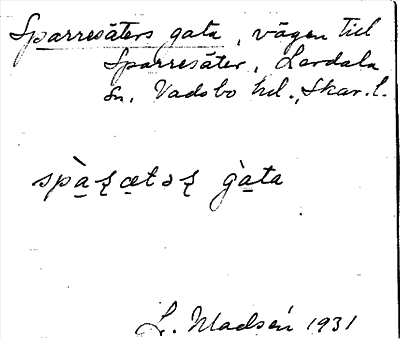 Sparresäters gata, vägen till
Sparresäter, Lerdala
sn, Vadsbo hd., Skar. l.
spàʂætəʂ gàta
L. Madsén 1931